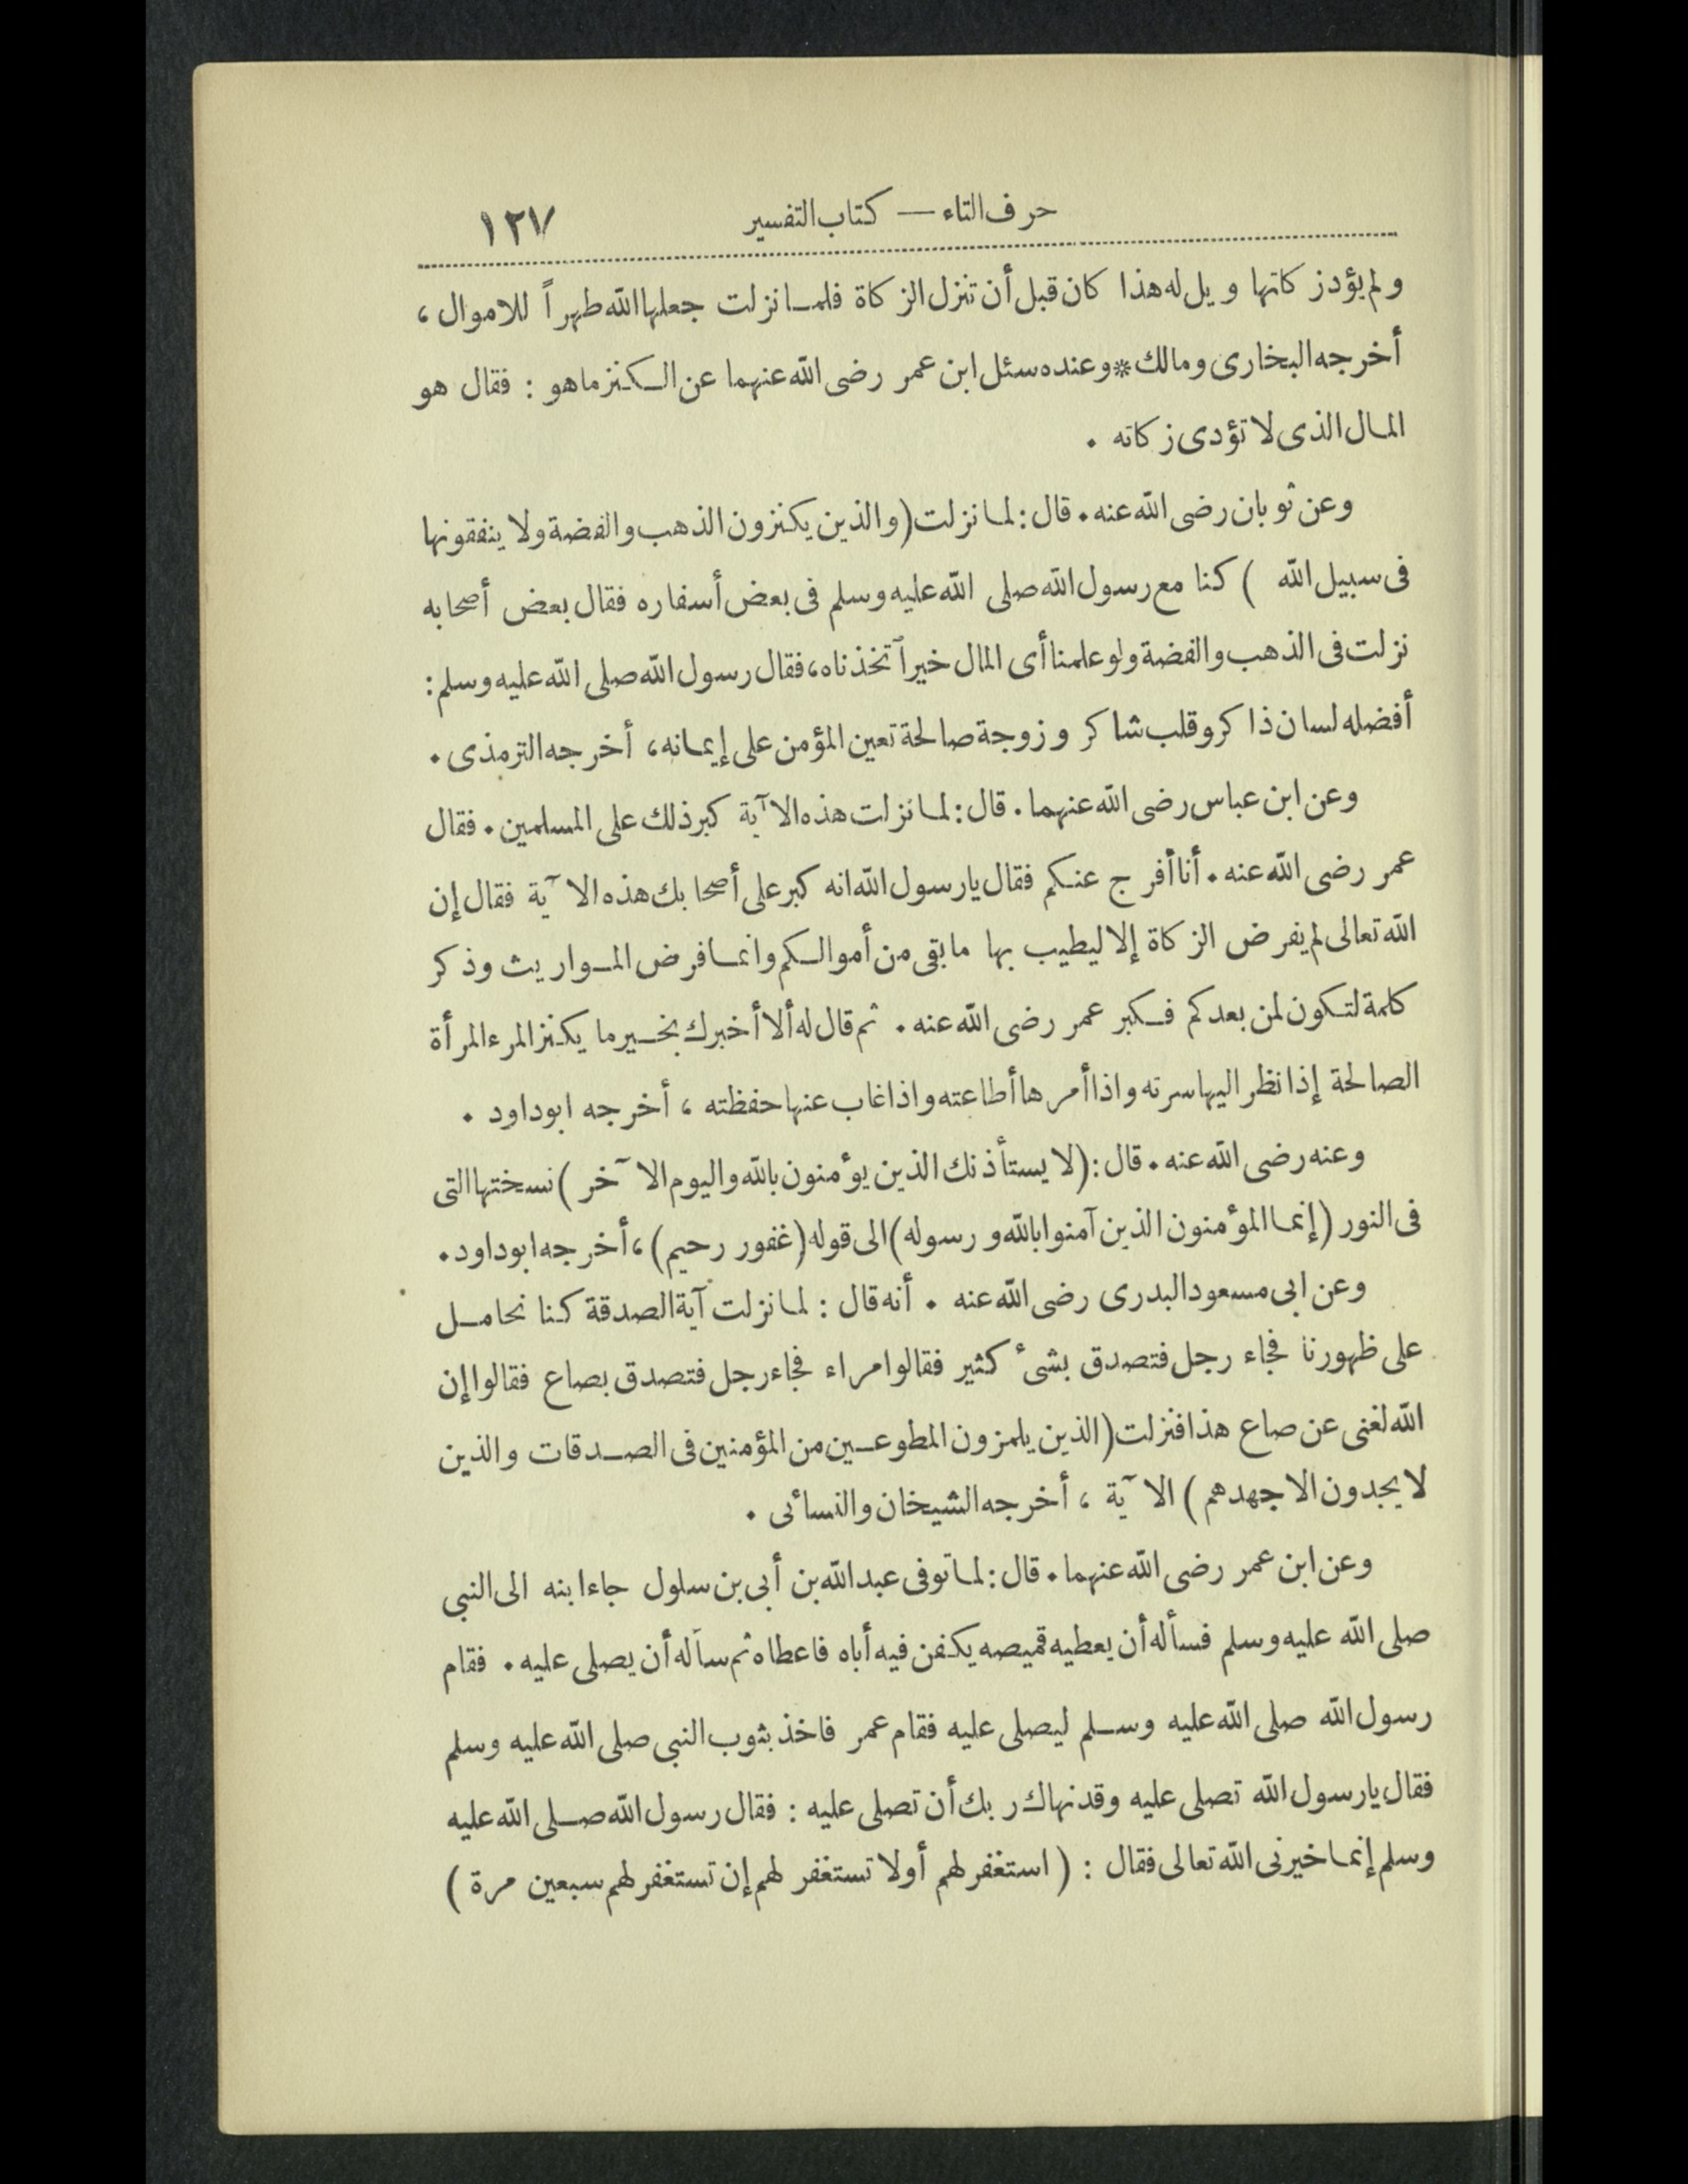 حرف التاء — كتاب التفسير ١٢٧
ولم يؤد زكاتها ويل له هذا كان قبل أن تنزل الزكاة فلما نزلت جعلها الله طهراً للاموال ،
أخرجه البخارى ومالك * وعنده سئل ابن عمر رضى الله عنهما عن الكنز ما هو : فقال هو
المال الذى لا تؤدى زكاته .
وعن ثوبان رضى الله عنه . قال : لما نزلت ( والذين يكنزون الذهب والفضة ولا ينفقونها
فى سبيل الله ) كنا مع رسول الله صلى الله عليه وسلم فى بعض أسفاره فقال بعض أصحابه
نزلت فى الذهب والفضة ولو علمنا أى المال خيراً تخذناه ، فقال رسول الله صلى الله عليه وسلم :
أفضله لسان ذاكر وقلب شاكر وزوجة صالحة تعين المؤمن على إيمانه ، أخرجه الترمذى .
وعن ابن عباس رضى الله عنهما . قال : لما نزلت هذه الآية كبر ذلك على المسلمين . فقال
عمر رضى الله عنه . أنا أفرج عنكم فقال يارسول الله انه كبر على أصحابك هذه الآية فقال إن
الله تعالى لم يفرض الزكاة إلا ليطيب بها ما بقى من أموالكم وانما فرض المواريث وذكر
كلمة لتكون لمن بعدكم فكبر عمر رضى الله عنه . ثم قال له ألا أخبرك بخير ما يكنز المرء المرأة
الصالحة إذا نظر اليها سرته واذا أمرها أطاعته واذا غاب عنها حفظته ، أخرجه ابو داود .
وعنه رضى الله عنه . قال : ( لا يستأذنك الذين يؤمنون بالله واليوم الآخر ) نسختها التى
فى النور ( إنما المؤمنون الذين آمنوا بالله ورسوله ) الى قوله ( غفور رحيم ) ، أخرجه ابو داود .
وعن ابى مسعود البدرى رضى الله عنه . أنه قال : لما نزلت آية الصدقة كنا نحامل
على ظهورنا فجاء رجل فتصدق بشىء كثير فقالوا مراء فجاء رجل فتصدق بصاع فقالوا إن
الله لغنى عن صاع هذا فنزلت ( الذين يلمزون المطوعين من المؤمنين فى الصدقات والذين
لا يجدون الا جهدهم ) الآية ، أخرجه الشيخان والنسائى .
وعن ابن عمر رضى الله عنهما . قال : لما توفى عبد الله بن أبى بن سلول جاء ابنه الى النبى
صلى الله عليه وسلم فسأله أن يعطيه قميصه يكفن فيه أباه فاعطاه ثم سأله أن يصلى عليه . فقام
رسول الله صلى الله عليه وسلم ليصلى عليه فقام عمر فاخذ بثوب النبى صلى الله عليه وسلم
فقال يارسول الله تصلى عليه وقد نهاك ربك أن تصلى عليه : فقال رسول الله صلى الله عليه
وسلم إنما خيرنى الله تعالى فقال : ( استغفر لهم أولا تستغفر لهم إن تستغفر لهم سبعين مرة )